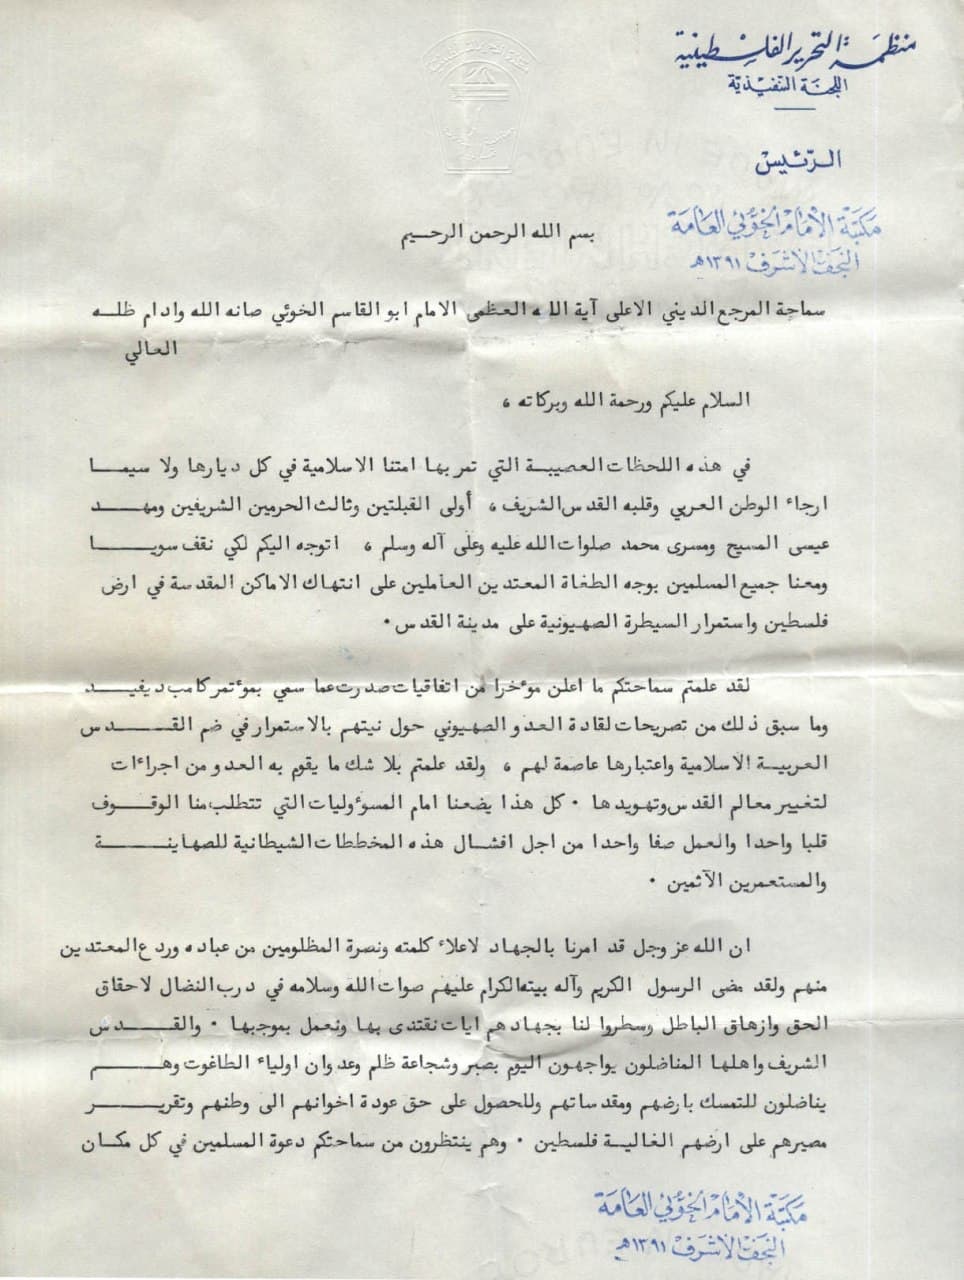 منظمة التحرير الفلسطينية
اللجنة التنفيذية
الرئيس
مكتبة الإمام الخوئي العامة
النجف الأشرف ١٣٩١هـ
بسم الله الرحمن الرحيم
سماحة المرجع الديني الاعلى آية الله العظمى الامام ابو القاسم الخوئي صانه الله وادام ظله
العالي
السلام عليكم ورحمة الله وبركاته ،
في هذه اللحظات العصيبة التي تمر بها امتنا الاسلامية في كل ديارها ولا سيما
ارجاء الوطن العربي وقلبه القدس الشريف ، أولى القبلتين وثالث الحرمين الشريفين ومهد
عيسى المسيح ومسرى محمد صلوات الله عليه وعلى آله وسلم ، اتوجه اليكم لكي نقف سويا
ومعنا جميع المسلمين بوجه الطغاة المعتدين العاملين على انتهاك الاماكن المقدسة في ارض
فلسطين واستمرار السيطرة الصهيونية على مدينة القدس .
لقد علمتم سماحتكم ما اعلن مؤخرا من اتفاقيات صدرت عما سمي بمؤتمر كامب ديفيد
وما سبق ذلك من تصريحات لقادة العدو الصهيوني حول نيتهم بالاستمرار في ضم القدس
العربية الاسلامية واعتبارها عاصمة لهم ، ولقد علمتم بلا شك ما يقوم به العدو من اجراءات
لتغيير معالم القدس وتهويدها . كل هذا يضعنا امام المسوؤليات التي تتطلب منا الوقوف
قلبا واحدا والعمل صفا واحدا من اجل افشال هذه المخططات الشيطانية للصهاينة
والمستعمرين الآثمين .
ان الله عز وجل قد امرنا بالجهاد لاعلاء كلمته ونصرة المظلومين من عباده وردع المعتدين
منهم ولقد مضى الرسول الكريم وآله بيته الكرام عليهم صوات الله وسلامه في درب النضال لاحقاق
الحق وازهاق الباطل وسطروا لنا بجهادهم ايات نقتدى بها ونعمل بموجبها . والقدس
الشريف واهلها المناضلون يواجهون اليوم بصبر وشجاعة ظلم وعدوان اولياء الطاغوت وهم
يناضلون للتمسك بارضهم ومقدساتهم وللحصول على حق عودة اخوانهم الى وطنهم وتقرير
مصيرهم على ارضهم الغالية فلسطين . وهم ينتظرون من سماحتكم دعوة المسلمين في كل مكان
مكتبة الإمام الخوئي العامة
النجف الأشرف ١٣٩١هـ